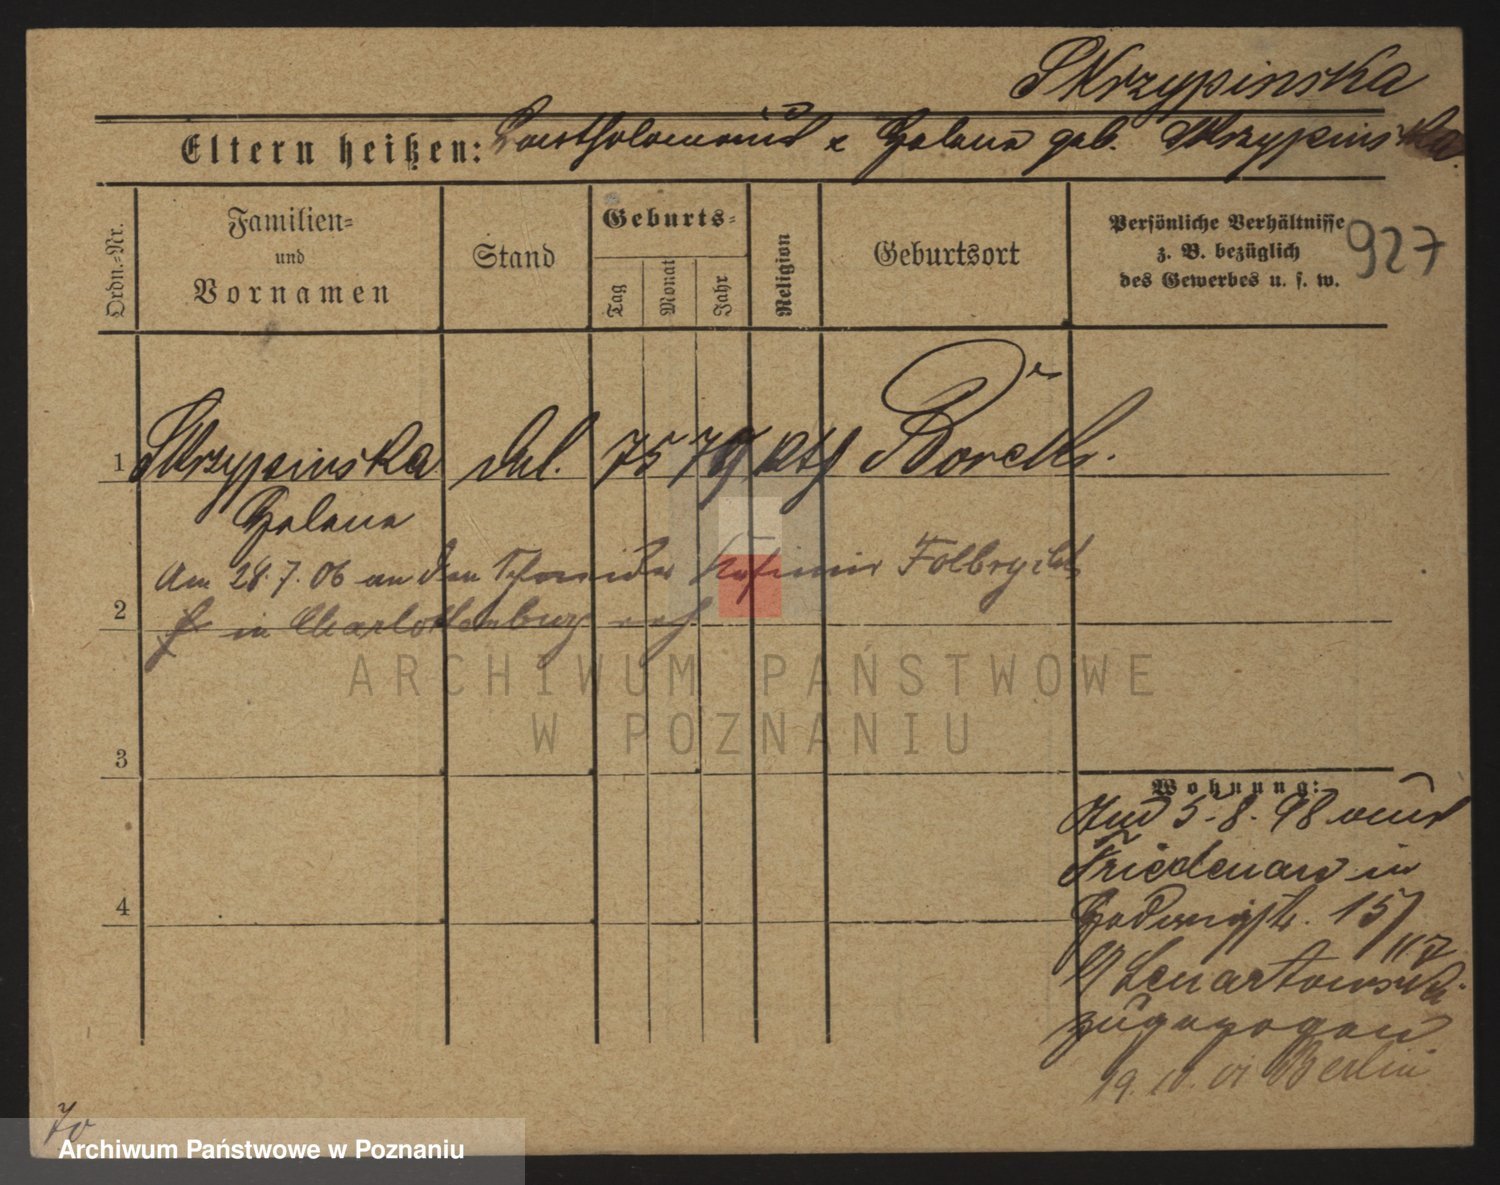 Skrzypinska
Eltern heißen: Bartholomäus & Helene geb. Skrzypinska.
Ordn.-Nr.
Familien-
und
Vornamen
Stand
Geburts-
Tag
Monat
Jahr
Religion
Geburtsort
Persönliche Verhältnisse
z. B. bezüglich
des Gewerbes u. s. w.
927
1 Skrzypinska led. 7 5 79 kth Borek
Helene
Am 28.7.06 an den Schneider Kasimir
2 in Charlottenburg verh
3
4
Wohnung:
5.8.98 aus
Friedenau in
Hedwigstr. 15
b/ Lenartowski
zugezogen
19.10.01 Berlin
70
ARCHIWUM PAŃSTWOWE
W POZNANIU
Archiwum Państwowe w Poznaniu